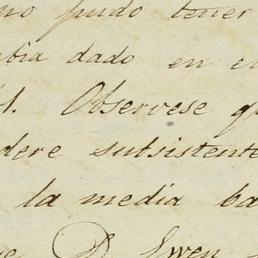 no pudo tener
bia dado en el
1. Observese q
dere subsistente
la media ba
D. Ewen